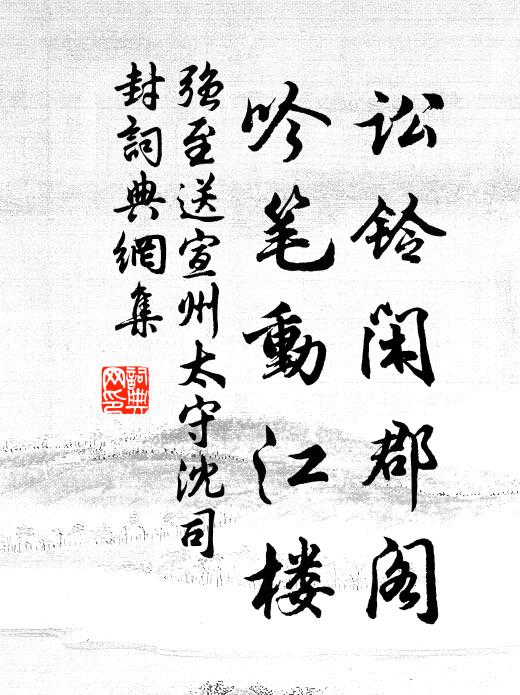 讼铃闲郡阁
吟笔動江楼
强至送宣州太守沈司
封詞典網集
詞典
网印